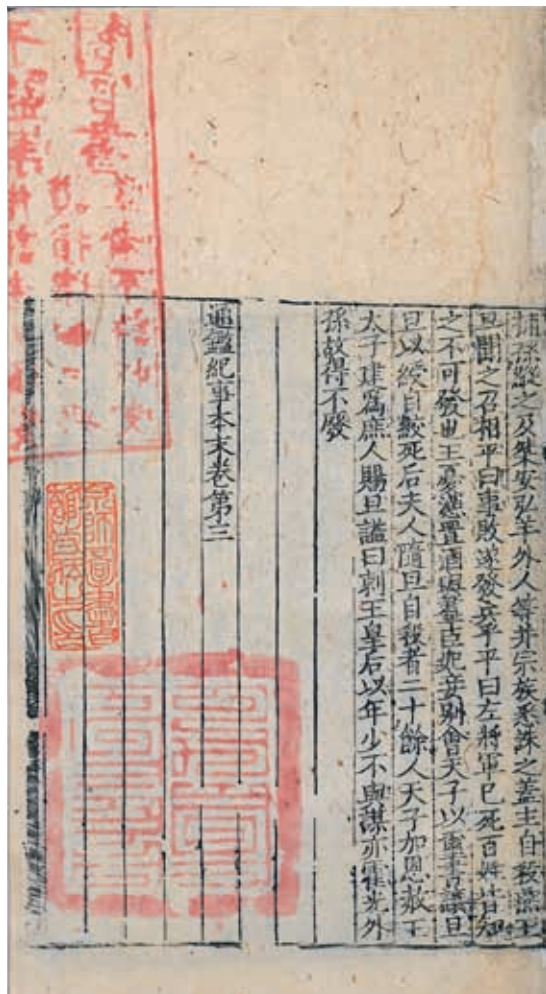 捕孫縱之及桀安弘羊外人等并宗族悉誅之蓋主自殺燕王
旦聞之召相平曰事敗遂發兵乎平曰左將軍已死百姓皆知
之不可發也王憂懣置酒與羣臣妃妾别會天子以璽書讓旦
旦以綬自絞死后夫人隨旦自殺者二十餘人天子加恩赦王
太子建爲庶人賜旦謚曰剌王皇后以年少不與謀亦霍光外
孫故得不廢
通鑑紀事本末卷第三
京師圖書
館收藏之印